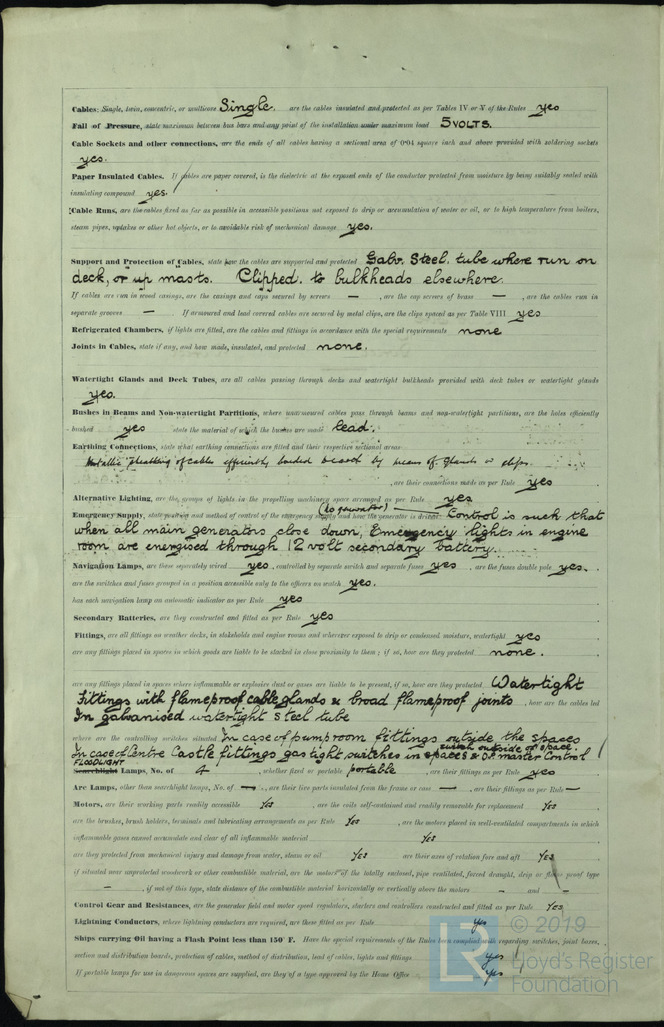 Cables: Single, twin, concentric, or multicore Single. are the cables insulated and protected as per Tables IV or V of the Rules yes
Fall of Pressure, state maximum between bus bars and any point of the installation under maximum load 5 VOLTS.
Cable Sockets and other connections, are the ends of all cables having a sectional area of 0·04 square inch and above provided with soldering sockets
yes.
Paper Insulated Cables. If cables are paper covered, is the dielectric at the exposed ends of the conductor protected from moisture by being suitably sealed with
insulating compound yes.
Cable Runs, are the cables fixed as far as possible in accessible positions not exposed to drip or accumulation of water or oil, or to high temperature from boilers,
steam pipes, uptakes or other hot objects, or to avoidable risk of mechanical damage yes.
Support and Protection of Cables, state how the cables are supported and protected Galv. Steel. tube where run on
deck, or up masts. Clipped. to bulkheads elsewhere.
If cables are run in wood casings, are the casings and caps secured by screws — , are the cap screws of brass — , are the cables run in
separate grooves — If armoured and lead covered cables are secured by metal clips, are the clips spaced as per Table VIII yes
Refrigerated Chambers, if lights are fitted, are the cables and fittings in accordance with the special requirements none
Joints in Cables, state if any, and how made, insulated, and protected none.
Watertight Glands and Deck Tubes, are all cables passing through decks and watertight bulkheads provided with deck tubes or watertight glands
yes.
Bushes in Beams and Non-watertight Partitions, where unarmoured cables pass through beams and non-watertight partitions, are the holes efficiently
bushed yes state the material of which the bushes are made lead.
Earthing Connections, state what earthing connections are fitted and their respective sectional areas
Metallic sheathing of cable efficiently bonded by means of glands or clips.
, are their connections made as per Rule yes
Alternative Lighting, are the groups of lights in the propelling machinery space arranged as per Rule yes
Emergency Supply, state position and method of control of the emergency supply and how the generator is driven (No generator) Control is such that
when all main generators close down, Emergency lights in engine
room are energised through 12 volt secondary battery.
Navigation Lamps, are these separately wired yes , controlled by separate switch and separate fuses yes , are the fuses double pole yes.
are the switches and fuses grouped in a position accessible only to the officers on watch yes.
has each navigation lamp an automatic indicator as per Rule yes
Secondary Batteries, are they constructed and fitted as per Rule yes
Fittings, are all fittings on weather decks, in stokeholds and engine rooms and wherever exposed to drip or condensed moisture, watertight yes
are any fittings placed in spaces in which goods are liable to be stacked in close proximity to them; if so, how are they protected none.
are any fittings placed in spaces where inflammable or explosive dust or gases are liable to be present, if so, how are they protected Watertight
Fittings with flameproof cable glands & broad flameproof joints , how are the cables led
In galvanised watertight steel tube
where are the controlling switches situated In case of pumproom fittings outside the spaces
In case of Centre Castle fittings gas tight switches in spaces & D.P. master Control
switch outside of space.
FLOODLIGHT
Searchlight Lamps, No. of 4 , whether fixed or portable portable , are their fittings as per Rule yes
Arc Lamps, other than searchlight lamps, No. of — , are their live parts insulated from the frame or case — , are their fittings as per Rule —
Motors, are their working parts readily accessible Yes , are the coils self-contained and readily removable for replacement Yes
are the brushes, brush holders, terminals and lubricating arrangements as per Rule Yes , are the motors placed in well-ventilated compartments in which
inflammable gases cannot accumulate and clear of all inflammable material Yes
are they protected from mechanical injury and damage from water, steam or oil Yes are their axes of rotation fore and aft Yes
if situated near unprotected woodwork or other combustible material, are the motors of the totally enclosed, pipe ventilated, forced draught, drip or flame proof type
— , if not of this type, state distance of the combustible material horizontally or vertically above the motors — and —
Control Gear and Resistances, are the generator field and motor speed regulators, starters and controllers constructed and fitted as per Rule Yes
Lightning Conductors, where lightning conductors are required, are these fitted as per Rule yes
Ships carrying Oil having a Flash Point less than 150° F. Have the special requirements of the Rules been complied with regarding switches, joint boxes,
section and distribution boards, protection of cables, method of distribution, lead of cables, lights and fittings yes
If portable lamps for use in dangerous spaces are supplied, are they of a type approved by the Home Office yes
© 2019
Lloyd's Register
Foundation
LR